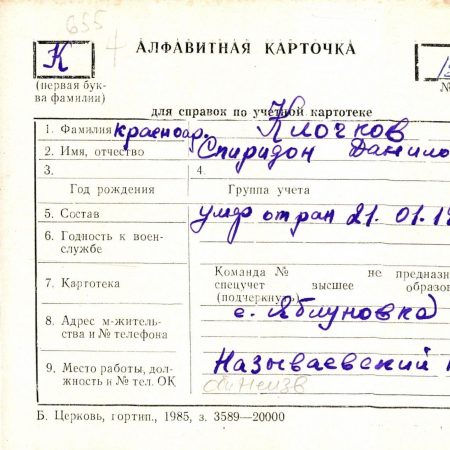 655
К
АЛФАВИТНАЯ КАРТОЧКА
(первая бук-
ва фамилии)
№
для справок по учетной картотеке
1. Фамилия красноар. Клочков
2. Имя, отчество Спиридон Данило
3.
4.
Год рождения
Группа учета
5. Состав умер от ран 21.01.19
6. Годность к воен-
службе
7. Картотека
Команда № не предназн
спецучет высшее образо
(подчеркнуть)
8. Адрес м-житель-
ства и № телефона
с. Яблуновка
9. Место работы, дол-
жность и № тел. ОК
Называевский
Б. Церковь, гортип., 1985, з. 3589—20000